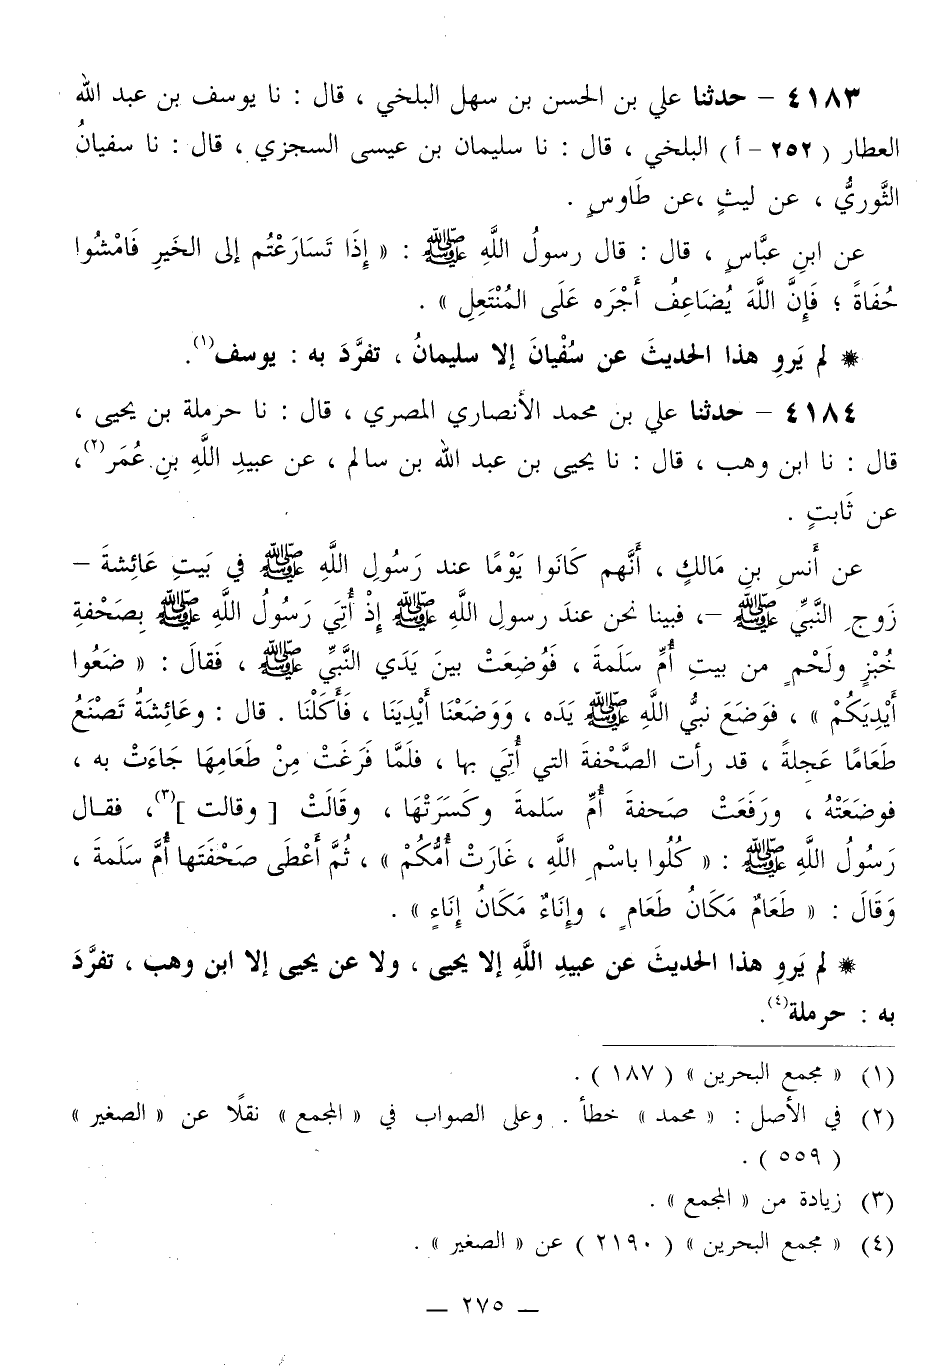 ٤١٨٣ – حدثنا علي بن الحسن بن سهل البلخي ، قال : نا يوسف بن عبد الله
العطار ( ٢٥٢ – أ ) البلخي ، قال : نا سليمان بن عيسى السجزي ، قال : نا سفيانُ
الثَّوريُّ ، عن ليثٍ ،عن طَاوسٍ .
عن ابنِ عبَّاسٍ ، قال : قال رسولُ اللَّهِ ﷺ : « إِذَا تَسَارَعْتُم إلى الخَيرِ فَامْشُوا
حُفَاةً ؛ فَإِنَّ اللَّهَ يُضَاعِفُ أَجْرَه عَلَى المُنْتَعِلِ » .
* لم يَروِ هذا الحديثَ عن سُفْيانَ إلا سليمانُ ، تفرَّدَ به : يوسف(١).
٤١٨٤ – حدثنا علي بن محمد الأنصاري المصري ، قال : نا حرملة بن يحيى ،
قال : نا ابن وهب ، قال : نا يحيى بن عبد الله بن سالم ، عن عبيدِ اللَّهِ بنِ عُمَر(٢)،
عن ثَابتٍ .
عن أَنسِ بنِ مَالكٍ ، أَنَّهم كَانَوا يَوْمًا عند رَسُولِ اللَّهِ ﷺ في بَيتِ عَائِشةَ –
زَوجِ النَّبيِّ ﷺ –، فبينا نحن عندَ رسولِ اللَّهِ ﷺ إِذْ أُتِيَ رَسُولُ اللَّهِ ﷺ بِصَحْفةِ
خُبْزٍ ولَحْمٍ من بيتِ أُمِّ سَلَمةَ ، فَوُضِعَتْ بينَ يَدَي النَّبيِّ ﷺ ، فَقالَ : « ضَعُوا
أَيْدِيَكُمْ » ، فوَضَعَ نبيُّ اللَّهِ ﷺ يَدَه ، وَوَضَعْنَا أَيْدِيَنَا ، فَأَكَلْنَا . قال : وعَائِشَةُ تَصْنَعُ
طَعَامًا عَجِلةً ، قد رأت الصَّحْفةَ التي أُتِيَ بها ، فلَمَّا فَرَغَتْ مِنْ طَعَامِهَا جَاءَتْ به ،
فوضَعَتْهُ ، ورَفَعَتْ صَحفةَ أُمِّ سَلمةَ وكَسَرَتْهَا ، وقَالَتْ [ وقالت ](٣)، فقـال
رَسُولُ اللَّهِ ﷺ : « كُلُوا باسْمِ اللَّهِ ، غَارَتْ أُمُّكُمْ » ، ثُمَّ أَعْطَى صَحْفَتَها أُمَّ سَلَمةَ ،
وَقَالَ : « طَعَامٌ مَكَانُ طَعَامٍ ، وإِنَاءٌ مَكَانُ إِنَاءٍ » .
* لم يَروِ هذا الحديثَ عن عبيدِ اللَّهِ إلا يحيى ، ولا عن يحيى إلا ابن وهب ، تفرَّدَ
به : حرملة(٤).
(١) « مجمع البحرين » ( ١٨٧ ) .
(٢) في الأصل : « محمد » خطأ . وعلى الصواب في « المجمع » نقلًا عن « الصغير »
( ٥٥٩ ) .
(٣) زيادة من « المجمع » .
(٤) « مجمع البحرين » ( ٢١٩٠ ) عن « الصغير » .
– ٢٧٥ –